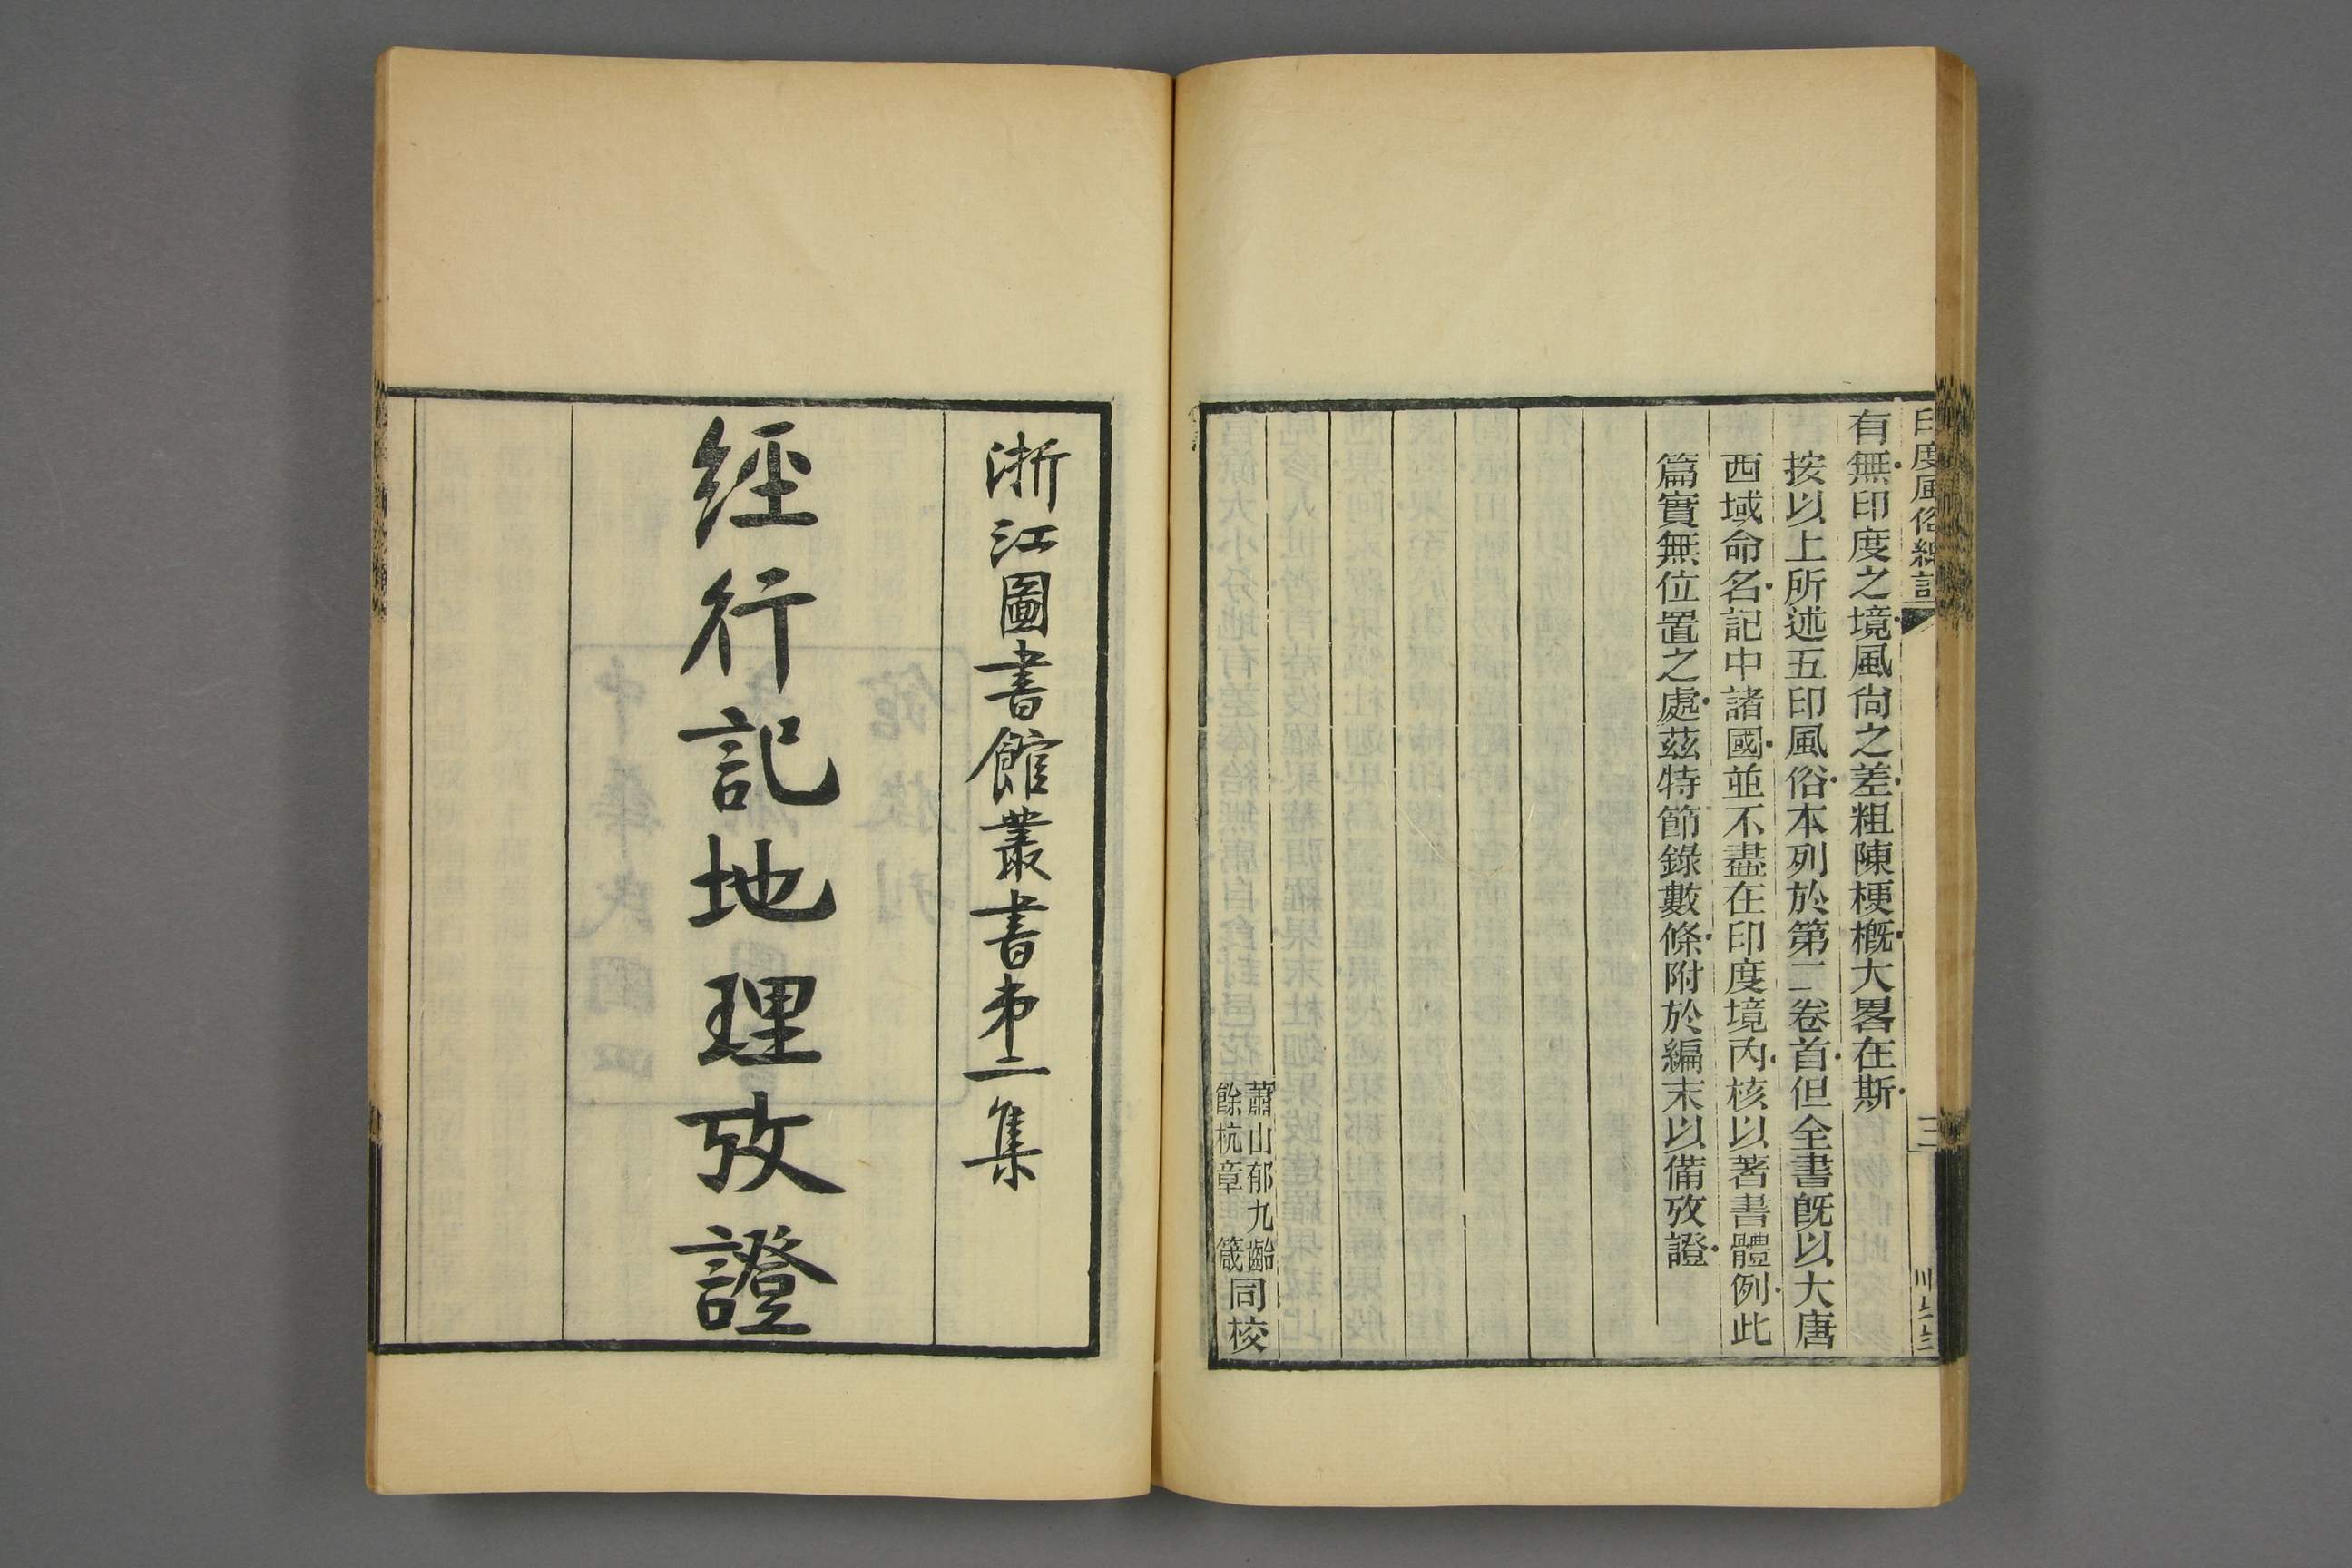 印度風俗總記
三
有無印度之境風尙之差粗陳梗槪大畧在斯
按以上所述五印風俗本列於第二卷首但全書旣以大唐
西域命名記中諸國並不盡在印度境內核以著書體例此
篇實無位置之處茲特節錄數條附於編末以備攷證
蕭山郁九齡
餘杭章箴
同校
浙江圖書館叢書弟二集
經行記地理攷證